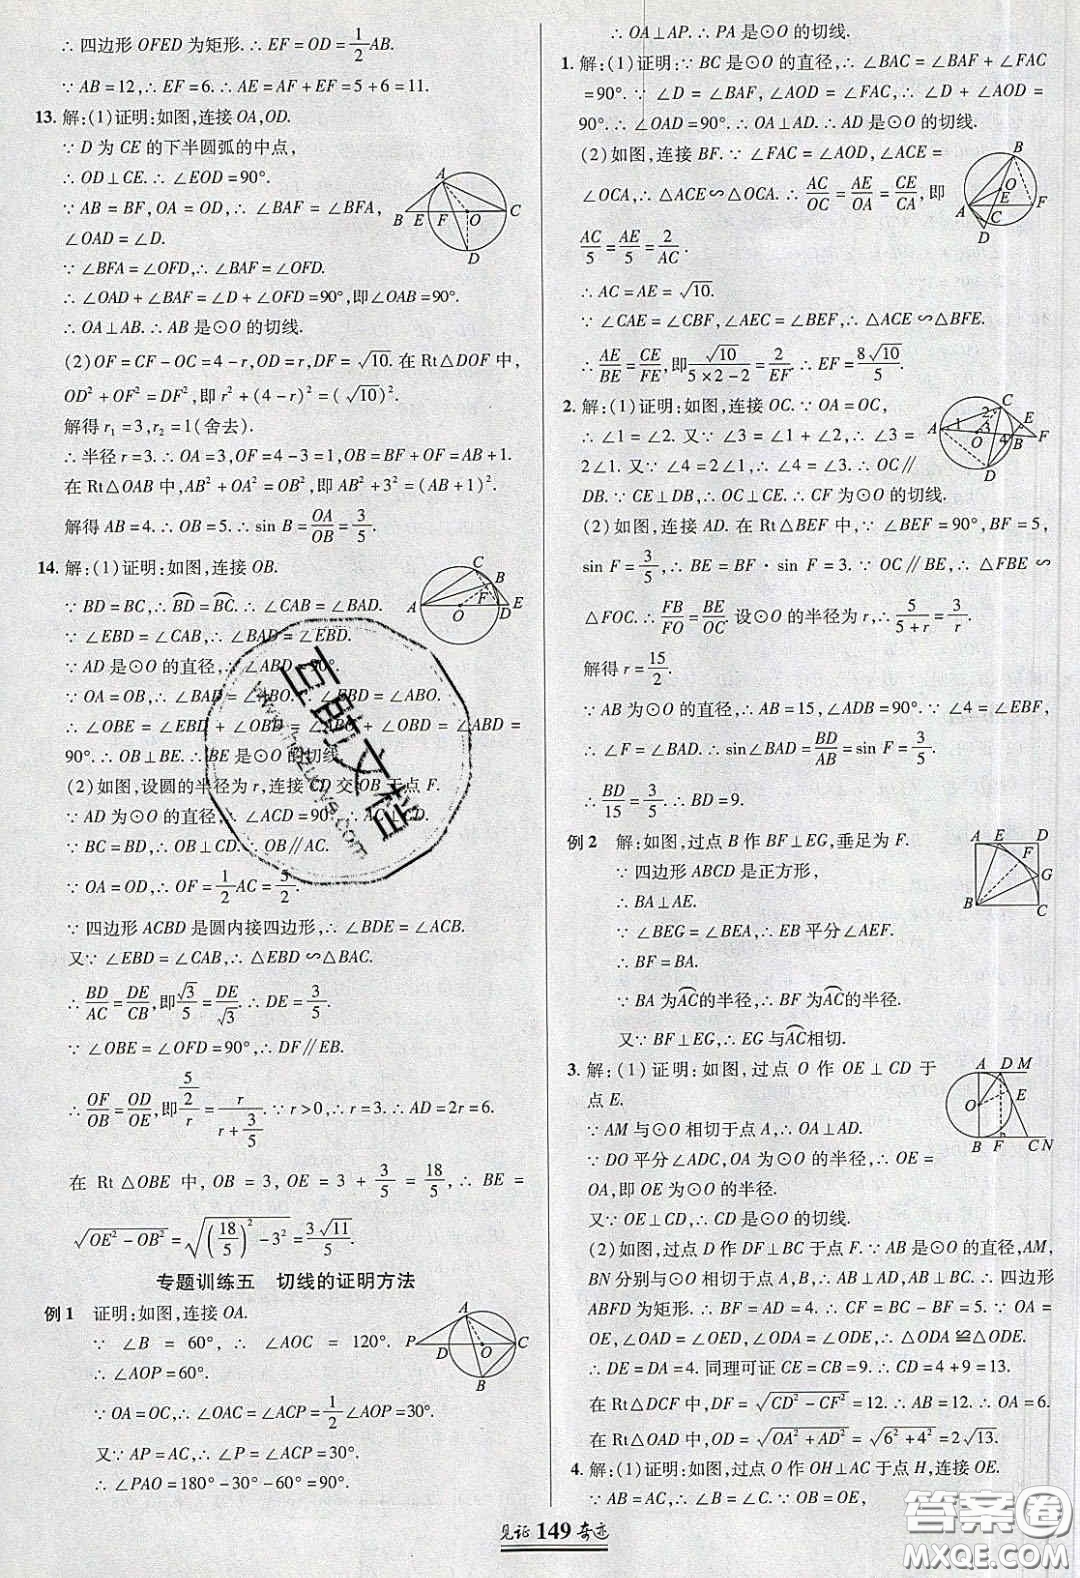 ∴四边形 OFED 为矩形.∴EF=OD=1/2AB.
∵AB=12,∴EF=6.∴AE=AF+EF=5+6=11.
13.解:(1)证明:如图,连接 OA,OD.
∵D 为 CE 的下半圆弧的中点,
∴OD⊥CE.∴∠EOD=90°.
∵AB=BF,OA=OD,∴∠BAF=∠BFA,
∠OAD=∠D.
∵∠BFA=∠OFD,∴∠BAF=∠OFD.
∴∠OAD+∠BAF=∠D+∠OFD=90°,即∠OAB=90°.
∴OA⊥AB.∴AB 是⊙O 的切线.
(2)OF=CF-OC=4-r,OD=r,DF=√10.在 Rt△DOF 中,
OD²+OF²=DF²,即 r²+(4-r)²=(√10)².
解得 r₁=3,r₂=1(舍去).
∴半径 r=3.∴OA=3,OF=4-3=1,OB=BF+OF=AB+1.
在 Rt△OAB 中,AB²+OA²=OB²,即 AB²+3²=(AB+1)².
解得 AB=4.∴OB=5.∴sin B=OA/OB=3/5.
A B E F O C D
14.解:(1)证明:如图,连接 OB.
∵BD=BC,∴⌒BD=⌒BC.∴∠CAB=∠BAD.
∵∠EBD=∠CAB,∴∠BAD=∠EBD.
∵AD 是⊙O 的直径,∴∠ABD=90°.
∵OA=OB,∴∠BAD=∠ABO.∴∠EBD=∠ABO.
∴∠OBE=∠EBD+∠OBD=∠ABO+∠OBD=∠ABD=
90°.∴OB⊥BE.∴BE 是⊙O 的切线.
(2)如图,设圆的半径为 r,连接 CD 交 OB 于点 F.
∵AD 为⊙O 的直径,∴∠ACD=90°.∴AC⊥CD.
∵BC=BD,∴OB⊥CD.∴OB∥AC.
∵OA=OD,∴OF=1/2AC=5/2.
∵四边形 ACBD 是圆内接四边形,∴∠BDE=∠ACB.
又∵∠EBD=∠CAB,∴△EBD∽△BAC.
∴BD/AC=DE/CB,即√3/5=DE/√3.∴DE=3/5.
∵∠OBE=∠OFD=90°,∴DF∥EB.
∴OF/OB=OD/OE,即(5/2)/r=r/(r+3/5).∵r>0,∴r=3.∴AD=2r=6.
在 Rt△OBE 中,OB=3,OE=3+3/5=18/5,∴BE=
√(OE²-OB²)=√((18/5)²-3²)=3√11/5.
A C B F O D E
专题训练五 切线的证明方法
例1 证明:如图,连接 OA.
∵∠B=60°,∴∠AOC=120°.
∴∠AOP=60°.
∵OA=OC,∴∠OAC=∠ACP=1/2∠AOP=30°.
又∵AP=AC,∴∠P=∠ACP=30°.
∴∠PAO=180°-30°-60°=90°.
A P D O C B
∴OA⊥AP.∴PA 是⊙O 的切线.
1.解:(1)证明:∵BC 是⊙O 的直径,∴∠BAC=∠BAF+∠FAC
=90°.∵∠D=∠BAF,∠AOD=∠FAC,∴∠D+∠AOD=
90°.∴∠OAD=90°.∴OA⊥AD.∴AD 是⊙O 的切线.
(2)如图,连接 BF.∵∠FAC=∠AOD,∠ACE=
∠OCA,∴△ACE∽△OCA.∴AC/OC=AE/OA=CE/CA,即
AC/5=AE/5=2/AC.
∴AC=AE=√10.
∵∠CAE=∠CBF,∠AEC=∠BEF,∴△ACE∽△BFE.
∴AE/BE=CE/FE,即√10/(5×2-2)=2/EF.∴EF=8√10/5.
B O A E F C D
2.解:(1)证明:如图,连接 OC.∵OA=OC,
∴∠1=∠2.又∵∠3=∠1+∠2,∴∠3=
2∠1.又∵∠4=2∠1,∴∠4=∠3.∴OC∥
DB.∵CE⊥DB,∴OC⊥CE.∴CF 为⊙O 的切线.
(2)如图,连接 AD.在 Rt△BEF 中,∵∠BEF=90°,BF=5,
sin F=3/5,∴BE=BF·sin F=3.∵OC∥BE,∴△FBE∽
△FOC.∴FB/FO=BE/OC.设⊙O 的半径为 r,∴5/(5+r)=3/r.
解得 r=15/2.
∵AB 为⊙O 的直径,∴AB=15,∠ADB=90°.∵∠4=∠EBF,
∴∠F=∠BAD.∴sin∠BAD=BD/AB=sin F=3/5.
∴BD/15=3/5.∴BD=9.
A 1 2 C 3 E O 4 B F D
例2 解:如图,过点 B 作 BF⊥EG,垂足为 F.
∵四边形 ABCD 是正方形,
∴BA⊥AE.
∵∠BEG=∠BEA,∴EB 平分∠AEF.
∴BF=BA.
∵BA 为⌒AC的半径,∴BF 为⌒AC的半径.
又∵BF⊥EG,∴EG 与⌒AC相切.
A E D F G B C
3.解:(1)证明:如图,过点 O 作 OE⊥CD 于
点 E.
∵AM 与⊙O 相切于点 A,∴OA⊥AD.
∵DO 平分∠ADC,OA 为⊙O 的半径,∴OE=
OA,即 OE 为⊙O 的半径.
又∵OE⊥CD,∴CD 是⊙O 的切线.
(2)如图,过点 D 作 DF⊥BC 于点 F.∵AB 是⊙O 的直径,AM,
BN 分别与⊙O 相切于点 A,B,∴AB⊥AD,AB⊥BC.∴四边形
ABFD 是矩形.∴BF=AD=4.∴CF=BC-BF=5.∵OA=
OE,∠OAD=∠OED,∠ODA=∠ODE,∴△ODA≌△ODE.
∴DE=DA=4.同理可证 CE=CB=9.∴CD=4+9=13.
在 Rt△DCF 中,DF=√(CD²-CF²)=12.∴AB=12.∴OA=6.
在 Rt△OAD 中,OD=√(OA²+AD²)=√(6²+4²)=2√13.
A D M E O B F C N
4.解:(1)证明:如图,过点 O 作 OH⊥AC 于点 H,连接 OE.
∵AB=AC,∴∠ABC=∠C.∵OB=OE,
见证 149 奇迹
互助文档
www.hzczys.com
答案圈
MXQE.COM